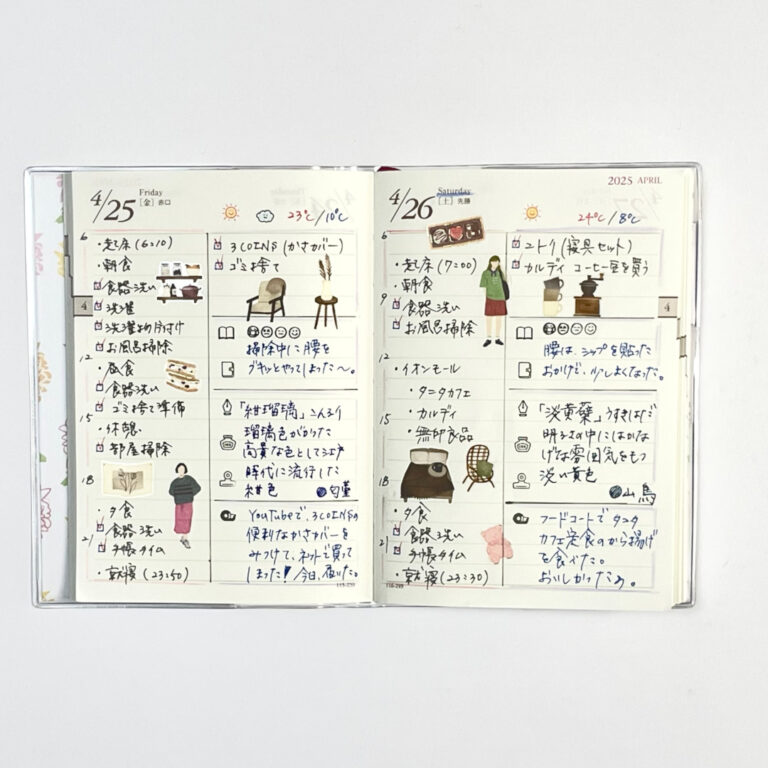 4/25
Friday
[金] 赤口
23℃/10℃
6
・起床(6:10)
・朝食
食器洗い
洗濯
洗濯物片付け
お風呂掃除
12
・昼食
食器洗い
ゴミ捨て準備
15
・休憩
部屋掃除
18
・夕食
食器洗い
21
手帳タイム
・就寝(23:50)
4
3COINS(かさカバー)
ゴミ捨て
掃除中に腰を
グキッとやってしまった〜。
「紺瑠璃」こんるり
瑠璃色がかった
高貴な色として江戸
時代に流行した
紺色
YouTubeで、3COINSの
便利なかさカバーを
みつけて、ネットで買って
しまった!今日、届いた。
4/26
Saturday
[土] 先勝
2025 APRIL
24℃/8℃
6
・起床(7:00)
・朝食
9
食器洗い
お風呂掃除
12
・イオンモール
・タニタカフェ
・カルディ
15
・無印良品
18
・夕食
食器洗い
21
手帳タイム
・就寝(23:30)
ニトリ(寝具セット)
カルディ コーヒー豆を買う
4
腰は、シップを貼った
おかげで、少しよくなった。
「淡黄蘗」うすきはだ
明るさの中にはかな
げな雰囲気をもつ
淡い黄色
山鳥
フードコートでタニタ
カフェ定食のから揚げ
を食べた。
おいしかったぁ。